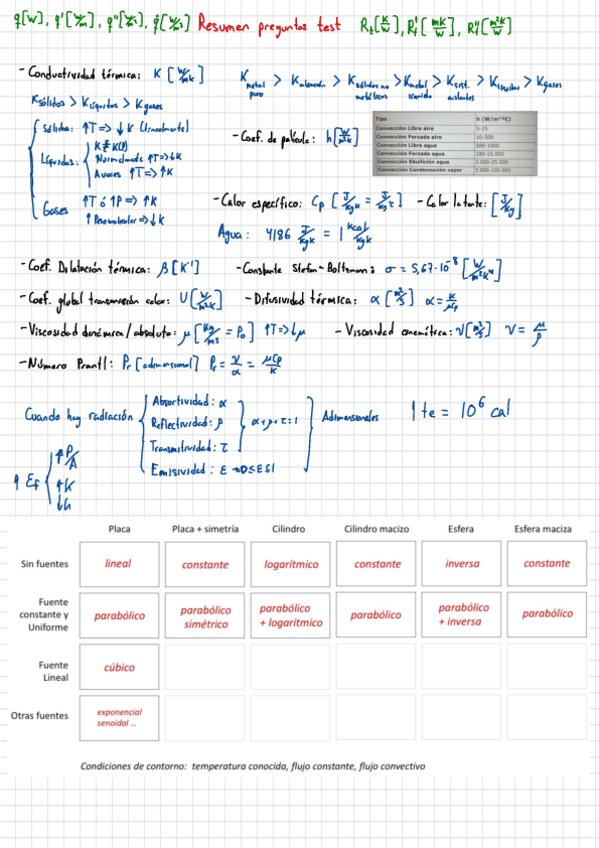 q[W], q'[W/m], q''[W/m²], q̇[W/m³] Resumen preguntas test Rt[K/W], Rt'[mK/W], Rt''[m²K/W]
- Conductividad térmica: K [W/mK]
K metal puro > K aleación > K sólidos no metálicos > K metal líquido > K sist. aislantes > K líquidos > K gases
Ksólidos > Klíquidos > Kgases
Sólidos: ↑T => ↓K (linealmente)
Líquidos: K ≠ K(P)
Normalmente ↑T => ↓K
A veces ↑T => ↑K
Gases ↑T ó ↑P => ↑K
↑ Peso molecular => ↓K
- Coef. de película: h[W/m²K]
Tipo h (W/m²ºC)
Convección Libre aire 5-25
Convección Forzada aire 10-500
Convección Libre agua 500-1000
Convección Forzada agua 100-15.000
Convección Ebullición agua 2.500-25.000
Convección Condensación vapor 5.000-100.000
- Calor específico: Cp [J/kgK = J/kgºC] - Calor latente: [J/kg]
Agua: 4186 J/kgK = 1 kcal/kgK
- Coef. Dilatación térmica: β[K⁻¹] - Constante Stefan-Boltzmann: σ = 5,67·10⁻⁸ [W/m²K⁴]
- Coef. global transmisión calor: U[W/m²K] - Difusividad térmica: α[m²/s] α = K/ρCp
- Viscosidad dinámica/absoluta: μ[kg/ms = Pa·s] ↑T => ↓μ - Viscosidad cinemática: ν[m²/s] ν = μ/ρ
- Número Prantl: Pr [adimensional] Pr = ν/α = μCp/K
Cuando hay radiación
Absortividad: α
Reflectividad: ρ
Transmitividad: τ
α + ρ + τ = 1
Emisividad: ε → 0≤ε≤1
Adimensionales
1 te = 10⁶ cal
↑ Ef
↑P/A
↑K
↓h
Placa Placa + simetría Cilindro Cilindro macizo Esfera Esfera maciza
Sin fuentes lineal constante logarítmico constante inversa constante
Fuente constante y Uniforme parabólico parabólico simétrico parabólico + logarítmico parabólico parabólico + inversa parabólico
Fuente Lineal cúbico
Otras fuentes exponencial senoidal ...
Condiciones de contorno: temperatura conocida, flujo constante, flujo convectivo